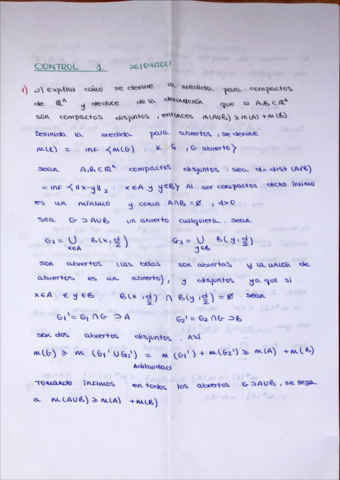 CONTROL 1 26/04/2021
1) a) explica cómo se define la medida para compactos
de ℝⁿ y deduce de la definición que si A,B⊂ℝⁿ
son compactos disjuntos, entonces m(A∪B)≥m(A)+m(B).
Definida la medida para abiertos, se define
m(K) = inf {m(G) : K⊂G, G abierto}
sean A,B⊂ℝⁿ compactos disjuntos sea d=dist(A,B)
=inf{||x-y||₂ : x∈A y y∈B} Al ser compactos dicho ínfimo
es un mínimo y como A∩B=∅, d>0
sea G⊃A∪B un abierto cualquiera. sean
G₁ = ∪ x∈A B(x, d/2) G₂ = ∪ y∈B B(y, d/2)
son abiertos (las bolas son abiertas y la unión de
abiertos es un abierto), y disjuntos ya que si
x∈A e y∈B B(x, d/2) ∩ B(y, d/2) = ∅ sean
G₁' = G₁∩G ⊃A G₂' = G₂∩G ⊃B
son dos abiertos disjuntos. Así
m(G) ≥ m(G₁'∪G₂') = m(G₁')+m(G₂') ≥ m(A)+m(B)
Aditividad
Tomando ínfimos en todos los abiertos G⊃A∪B, se llega
a m(A∪B)≥m(A)+m(B)